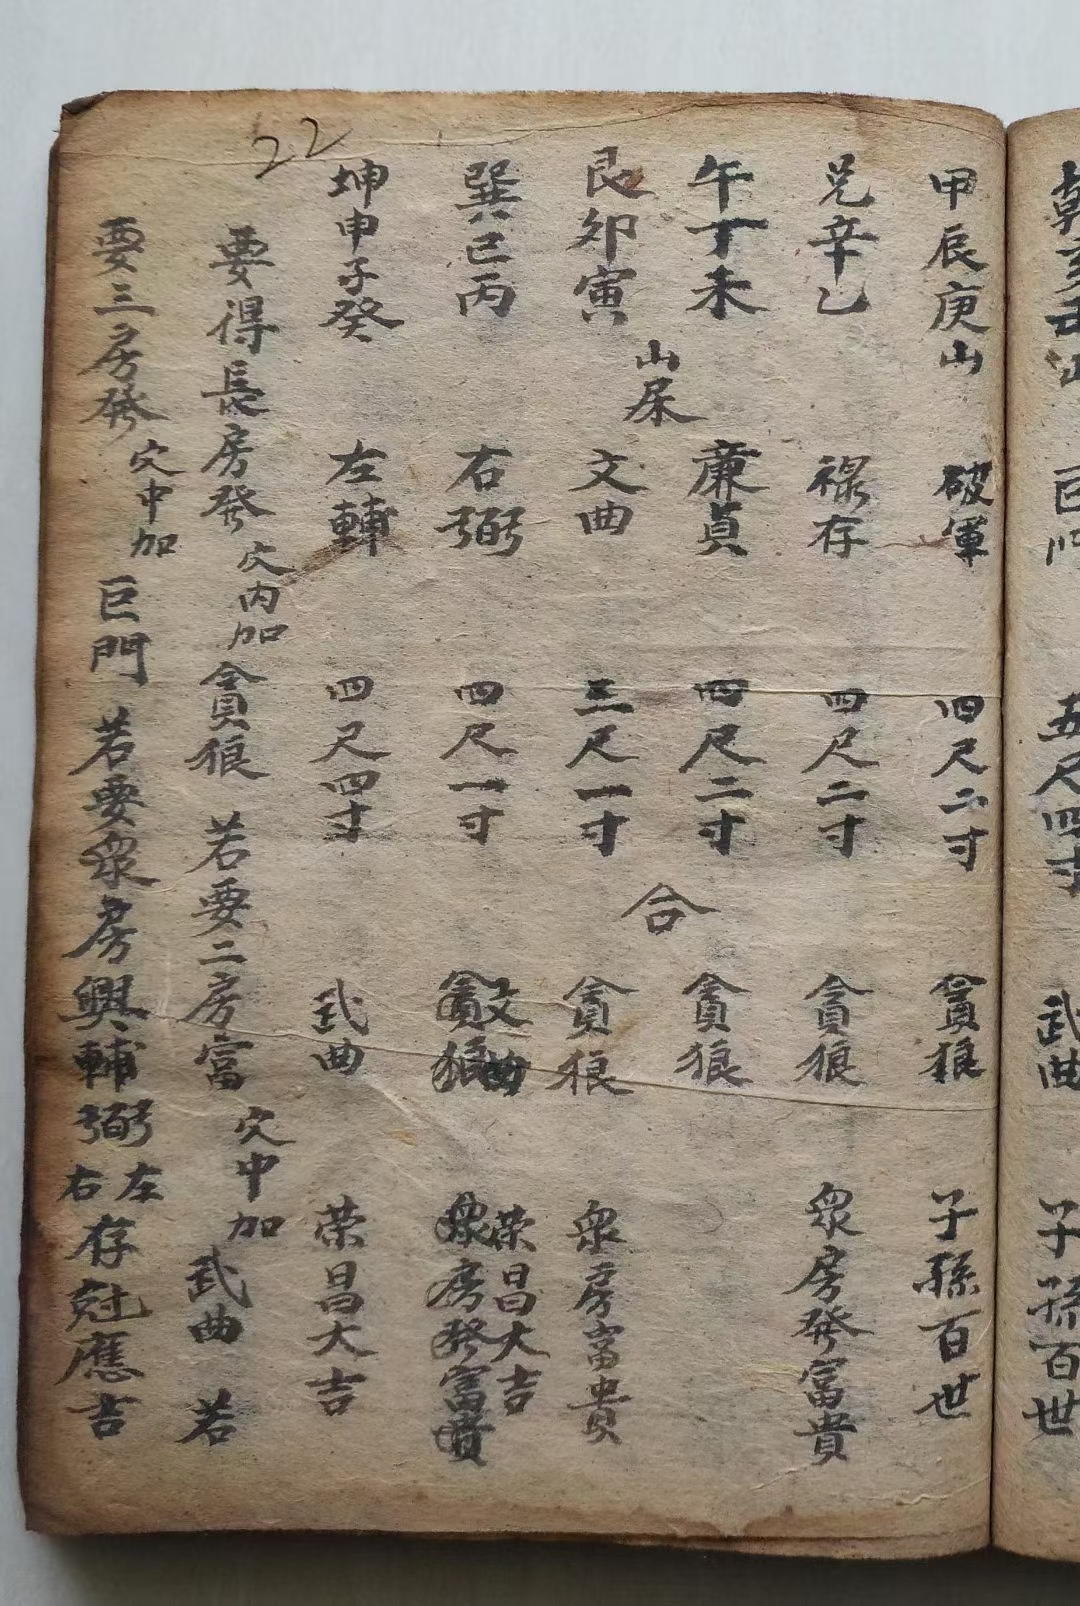 乾亥壬山 巨門 五尺四寸 武曲 子孫百世
22
甲辰庚山 破軍 四尺二寸 貪狼 子孫百世
兑辛乙 祿存 四尺二寸 貪狼 衆房發富貴
午丁未 廉貞 四尺二寸 貪狼
山屎 合
艮卯寅 文曲 三尺一寸 貪狼 衆房富貴
巽巳丙 右弼 四尺一寸 文曲 榮昌大吉
貪狼 衆房發富貴
坤申子癸 左輔 四尺四寸 武曲 荣昌大吉
要得長房發 穴内加 貪狼 若要二房富 穴中加 武曲 若
要三房發 穴中加 巨門 若要衆房興輔弼左右存 應吉